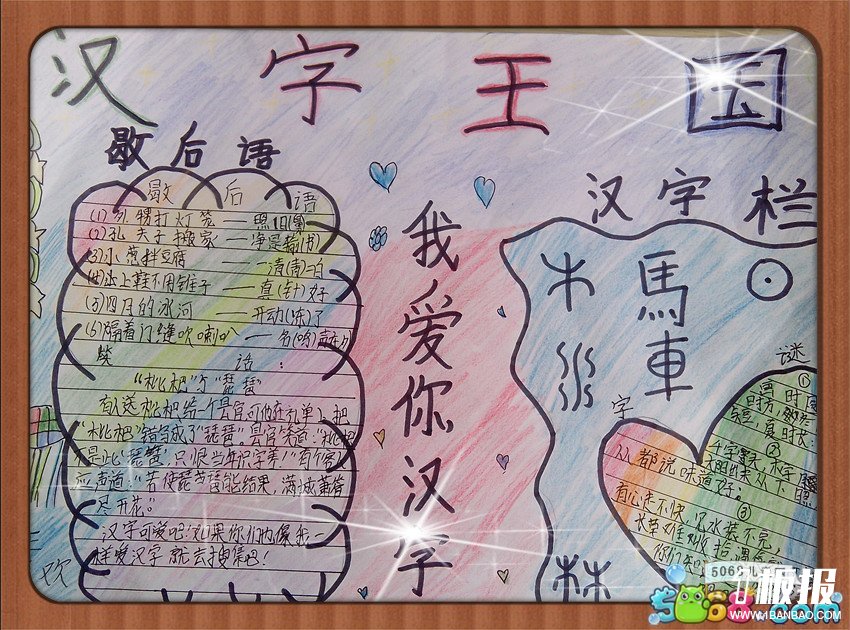 汉字王国
歇后语
歇后语
(1)孔 甥打灯笼——照旧(舅)
(2)孔夫子搬家——净是输(书)
(3)小葱拌豆腐——一清(青)二白
(4)上鞋不用锥子——真(针)好
(5)四月的冰河——开动(冻)了
(6)隔着门缝吹喇叭——名(鸣)声在外
笑话:
“枇杷”与“琵琶”
有人送枇杷给一个县官,可他在礼单上把
“枇杷”错写成了“琵琶”。县官笑道:“枇杷
是此“琵琶”,只恨当年识字差!”有个客人
应声道:“若使琵琶能结果,满城箫管
尽开花。”
汉字可爱吧!如果你们也像我一
样爱汉字就去搜集吧!
欢
我爱你汉字
汉字栏
木 馬 車
林
字谜
①
②
人人都说味道好。
③
有心走不快,见水装不完
5068儿童网
5068.com
板报
WWW.1BANBAO.COM